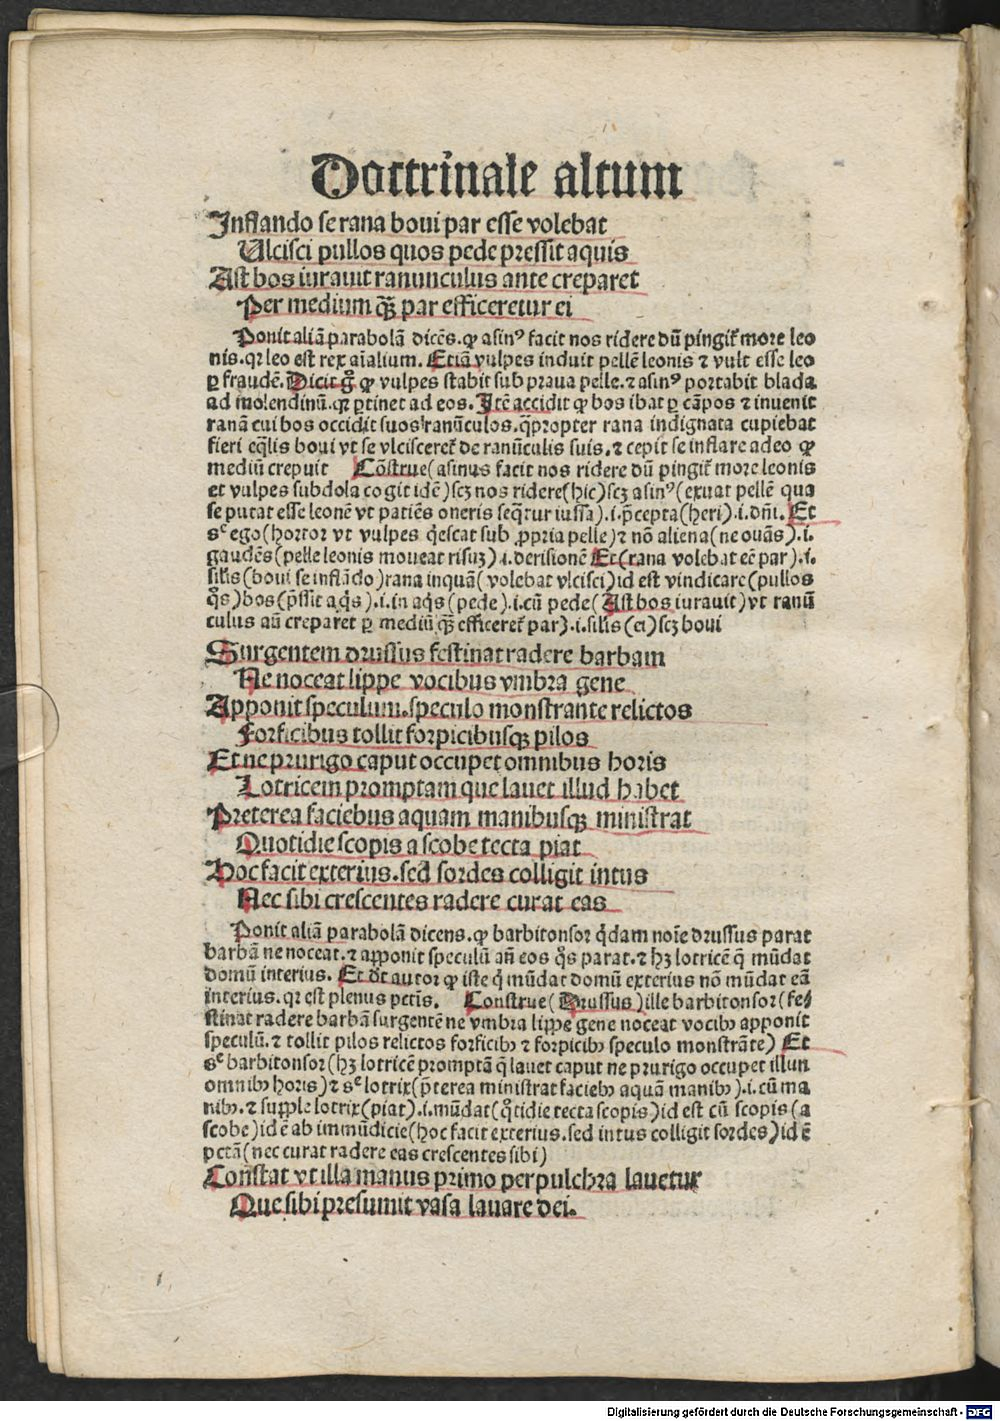 Doctrinale altum
Inflando se rana boui par esse volebat
Ulcisci pullos quos pede pressit aquis
Ast bos iurauit ranunculus ante creparet
Per medium q̄ꝫ par efficeretur ei
Ponit aliā parabolā dicēs. ꝙ asinꝰ facit nos ridere dū pingit᷑ more leo
nis. qꝛ leo est rex aīalium. Etiā vulpes induit pellē leonis ⁊ vult esse leo
ꝑ fraudē. Dicit gͦ ꝙ vulpes stabit sub praua pelle. ⁊ asinꝰ portabit blada
ad molendinū. qꝛ ꝑtinet ad eos. Itē accidit ꝙ bos ibat ꝑ cāpos ⁊ inuenit
ranā cui bos occidit suos ranūculos. q̄propter rana indignata cupiebat
fieri eq̄lis boui vt se vlcisceret᷑ de ranūculis suis. ⁊ cepit se inflare adeo ꝙ
mediū crepuit Cōstrue (asinus facit nos ridere dū pingit᷑ more leonis
et vulpes subdola cogit idē) scꝫ nos ridere (hic) scꝫ asinꝰ (exuat pellē qua
se putat esse leonē vt patiēs oneris seq̄tur iussa) .i. p̄cepta (heri) .i. dn̄i. Et
sᶜ ego (hortor vt vulpes q̇escat sub ꝓpria pelle) ⁊ nō aliena (ne ouās) .i.
gaudēs (pelle leonis moueat risuꝫ) .i. derisionē Et (rana volebat eē par) .i.
silis (boui se inflādo) rana inquā (volebat vlcisci) id est vindicare (pullos
q̊s) bos (p̄ssit aq̇s) .i. in aq̇s (pede) .i. cū pede (Ast bos iurauit) vt ranū
culus añ creparet ꝑ mediū q̄ꝫ efficeret᷑ par) .i. silis (ei) scꝫ boui
Surgentem drussus festinat radere barbam
Ne noceat lippe vocibus vmbra gene
Apponit speculum. speculo monstrante relictos
Forficibus tollit forpicibusqꝫ pilos
Et ne prurigo caput occupet omnibus horis
Lotricem promptam que lauet illud habet
Preterea faciebus aquam manibusqꝫ ministrat
Quotidie scopis a scobe tecta piat
Hoc facit exterius. sed sordes colligit intus
Nec sibi crescentes radere curat eas
Ponit aliā parabolā dicens. ꝙ barbitonsor q̇dam noīe drussus parat
barbā ne noceat. ⁊ apponit speculū añ eos q̊s parat. ⁊ hꝫ lotricē q̄ mūdat
domū interius. Et dt̄ autor ꝙ iste q̇ mūdat domū exterius nō mūdat eā
interius. qꝛ est plenus pctīs. Construe (Drussus) ille barbitonsor (fe-
stinat radere barbā surgentē ne vmbra lippe gene noceat vocibꝫ apponit
speculū. ⁊ tollit pilos relictos forficibꝫ ⁊ forpicibꝫ speculo monstrāte) Et
sᶜ barbitonsor (hꝫ lotricē promptā q̄ lauet caput ne prurigo occupet illun
omnibꝫ horis) ⁊ sᶜ lotrix (p̄terea ministrat faciebꝫ aquā manibꝫ) .i. cū ma
nibꝫ. ⁊ supple lotrix (piat) .i. mūdat (q̊tidie tecta scopis) id est cū scopis (a
scobe) id ē ab immūdicie (hoc facit exterius. sed intus colligit sordes) id ē
pctā (nec curat radere eas crescentes sibi)
Constat vt illa manus primo perpulchra lauetur
Que sibi presumit vasa lauare dei.
Digitalisierung gefördert durch die Deutsche Forschungsgemeinschaft - DFG